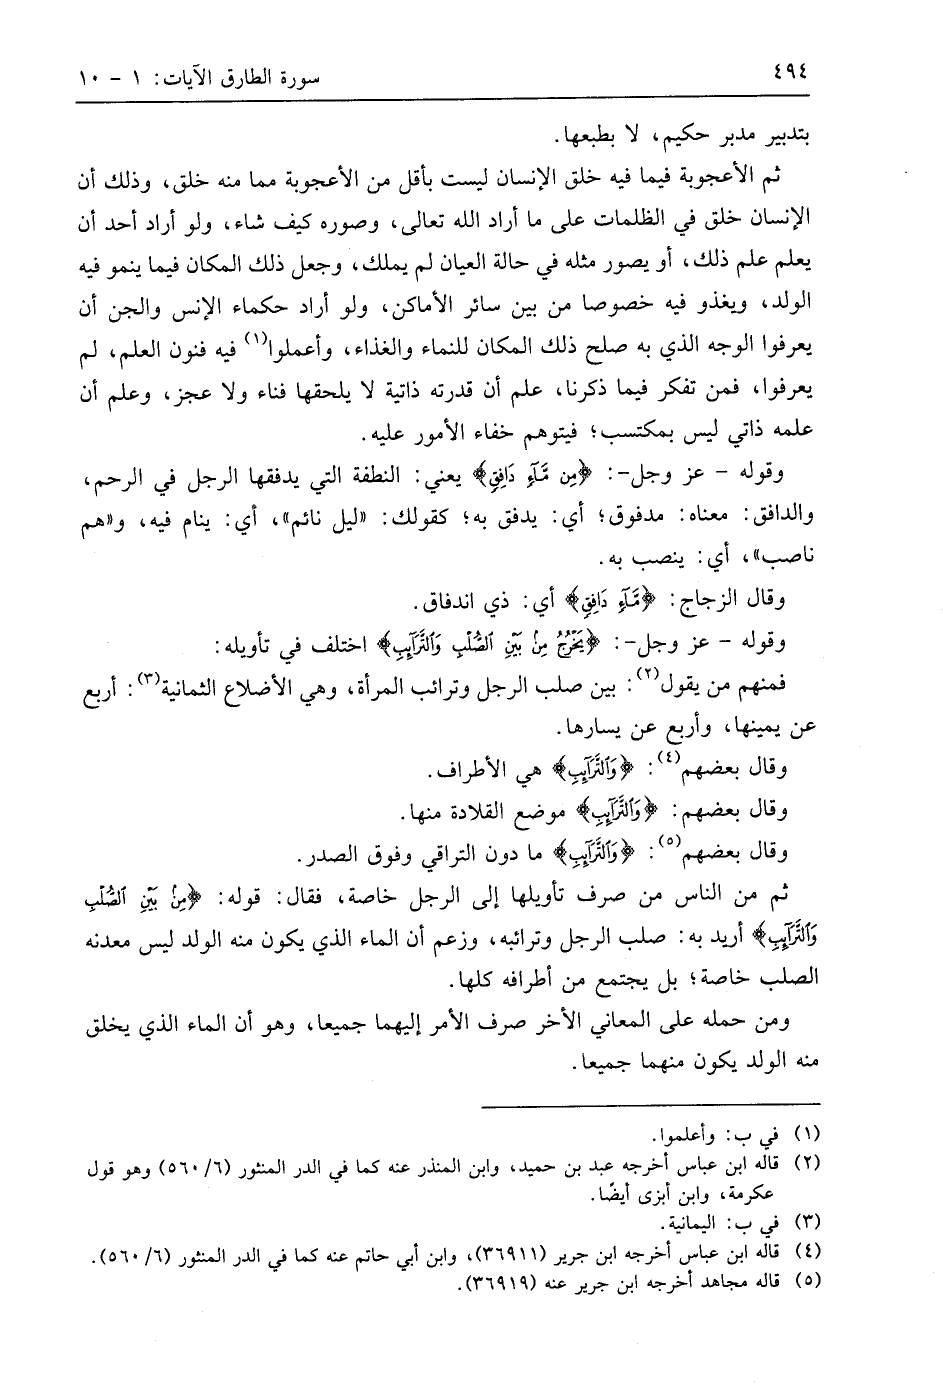 ٤٩٤
سورة الطارق الآيات: ١ - ١٠
بتدبير مدبر حكيم، لا بطبعها.
ثم الأعجوبة فيما فيه خلق الإنسان ليست بأقل من الأعجوبة مما منه خلق، وذلك أن
الإنسان خلق في الظلمات على ما أراد الله تعالى، وصوره كيف شاء، ولو أراد أحد أن
يعلم علم ذلك، أو يصور مثله في حالة العيان لم يملك، وجعل ذلك المكان فيما ينمو فيه
الولد، ويغذو فيه خصوصا من بين سائر الأماكن، ولو أراد حكماء الإنس والجن أن
يعرفوا الوجه الذي به صلح ذلك المكان للنماء والغذاء، وأعملوا(١) فيه فنون العلم، لم
يعرفوا، فمن تفكر فيما ذكرنا، علم أن قدرته ذاتية لا يلحقها فناء ولا عجز، وعلم أن
علمه ذاتي ليس بمكتسب؛ فيتوهم خفاء الأمور عليه.
وقوله - عز وجل-: ﴿مِن مَّآءٖ دَافِقٖ﴾ يعني: النطفة التي يدفقها الرجل في الرحم،
والدافق: معناه: مدفوق؛ أي: يدفق به؛ كقولك: «ليل نائم»، أي: ينام فيه، و«هم
ناصب»، أي: ينصب به.
وقال الزجاج: ﴿مَّآءٖ دَافِقٖ﴾ أي: ذي اندفاق.
وقوله - عز وجل-: ﴿يَخۡرُجُ مِنۢ بَيۡنِ ٱلصُّلۡبِ وَٱلتَّرَآئِبِ﴾ اختلف في تأويله:
فمنهم من يقول(٢): بين صلب الرجل وترائب المرأة، وهي الأضلاع الثمانية(٣): أربع
عن يمينها، وأربع عن يسارها.
وقال بعضهم(٤): ﴿وَٱلتَّرَآئِبِ﴾ هي الأطراف.
وقال بعضهم: ﴿وَٱلتَّرَآئِبِ﴾ موضع القلادة منها.
وقال بعضهم(٥): ﴿وَٱلتَّرَآئِبِ﴾ ما دون التراقي وفوق الصدر.
ثم من الناس من صرف تأويلها إلى الرجل خاصة، فقال: قوله: ﴿مِنۢ بَيۡنِ ٱلصُّلۡبِ
وَٱلتَّرَآئِبِ﴾ أريد به: صلب الرجل وترائبه، وزعم أن الماء الذي يكون منه الولد ليس معدنه
الصلب خاصة؛ بل يجتمع من أطرافه كلها.
ومن حمله على المعاني الأخر صرف الأمر إليهما جميعا، وهو أن الماء الذي يخلق
منه الولد يكون منهما جميعا.
(١) في ب: وأعلموا.
(٢) قاله ابن عباس أخرجه عبد بن حميد، وابن المنذر عنه كما في الدر المنثور (٦/ ٥٦٠) وهو قول
عكرمة، وابن أبزى أيضًا.
(٣) في ب: اليمانية.
(٤) قاله ابن عباس أخرجه ابن جرير (٣٦٩١١)، وابن أبي حاتم عنه كما في الدر المنثور (٦/ ٥٦٠).
(٥) قاله مجاهد أخرجه ابن جرير عنه (٣٦٩١٩).